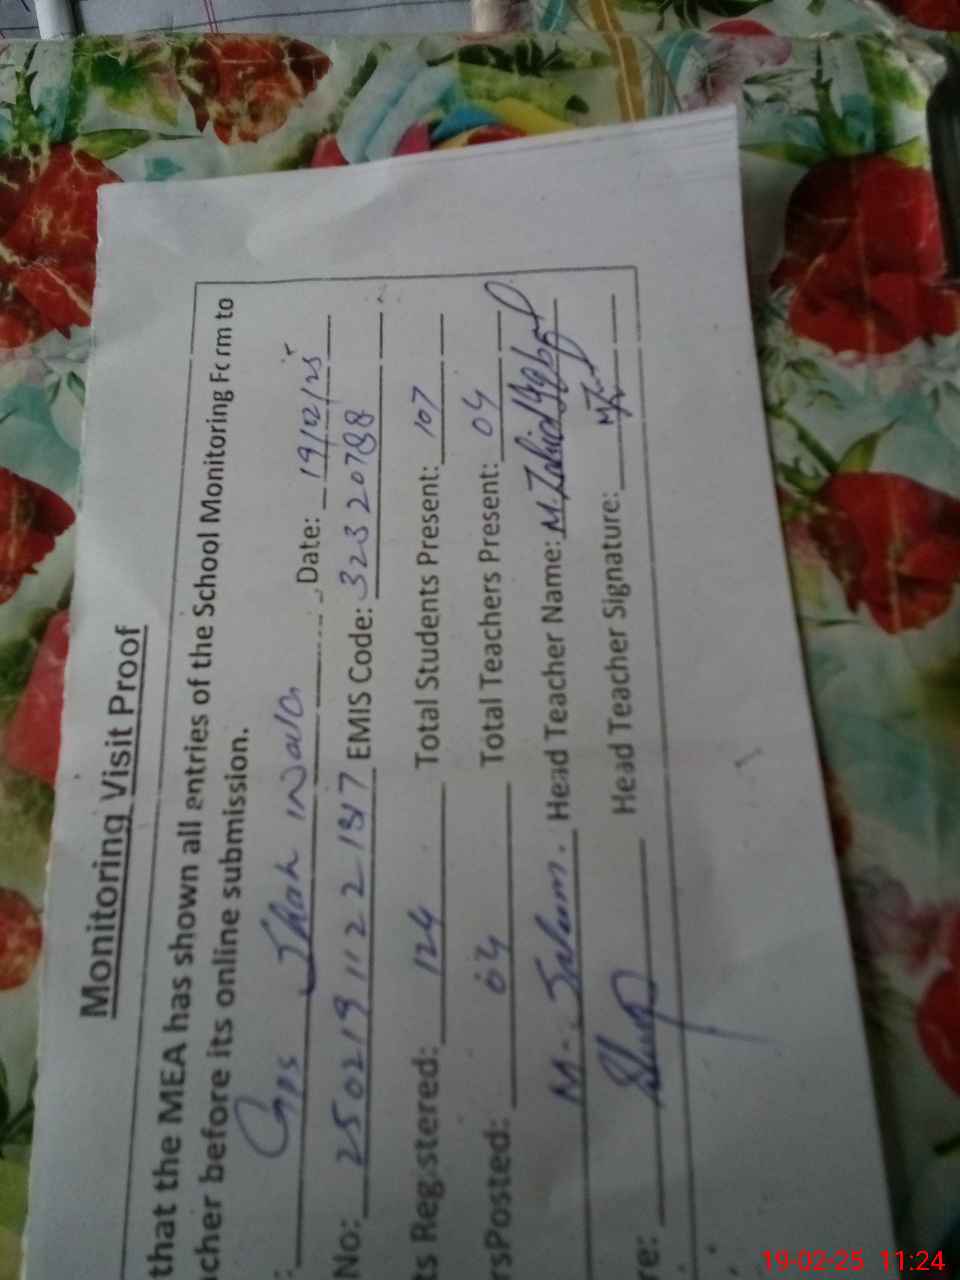 Monitoring Visit Proof
that the MEA has shown all entries of the School Monitoring Form to
cher before its online submission.
: Gps Jhok wala Date: 19/02/25
No: 2502191122 1317 EMIS Code: 32320788
ts Registered: 124 Total Students Present: 107
rsPosted: 04 Total Teachers Present: 04
M. Salam. Head Teacher Name: M. Zahid Iqbal
re: Head Teacher Signature:
19-02-25 11:24